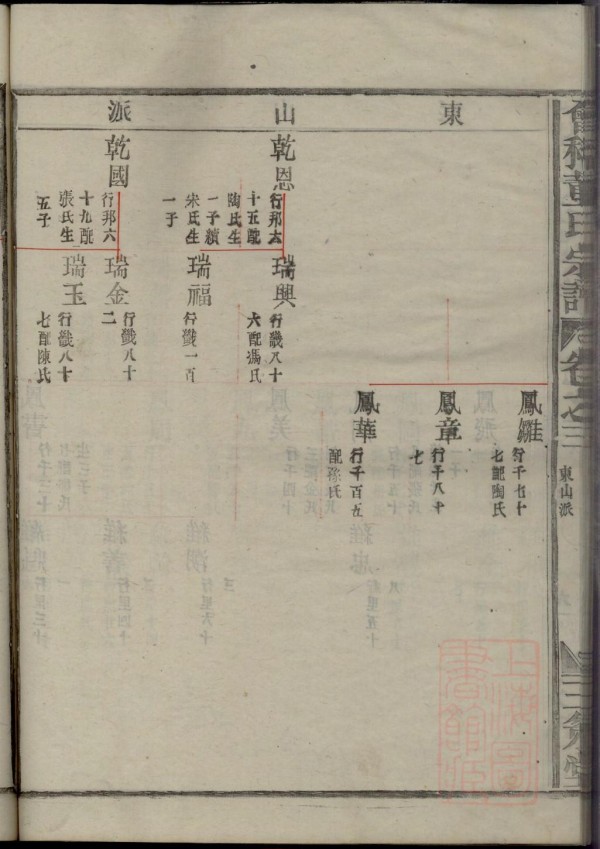 東山派
鳳雛
行千七十
七配陶氏
鳳章
行千八十
七
鳳華
行千百五
配孫氏
乾恩
行邦六
十五配
陶氏生
一子續
宋氏生
一子
瑞興
行畿八十
六配馮氏
瑞福
行畿一百
乾國
行邦六
十九配
張氏生
五子
瑞金
行畿八十
二
瑞玉
行畿八十
七配陳氏
黃氏宗譜
卷之三
東山派